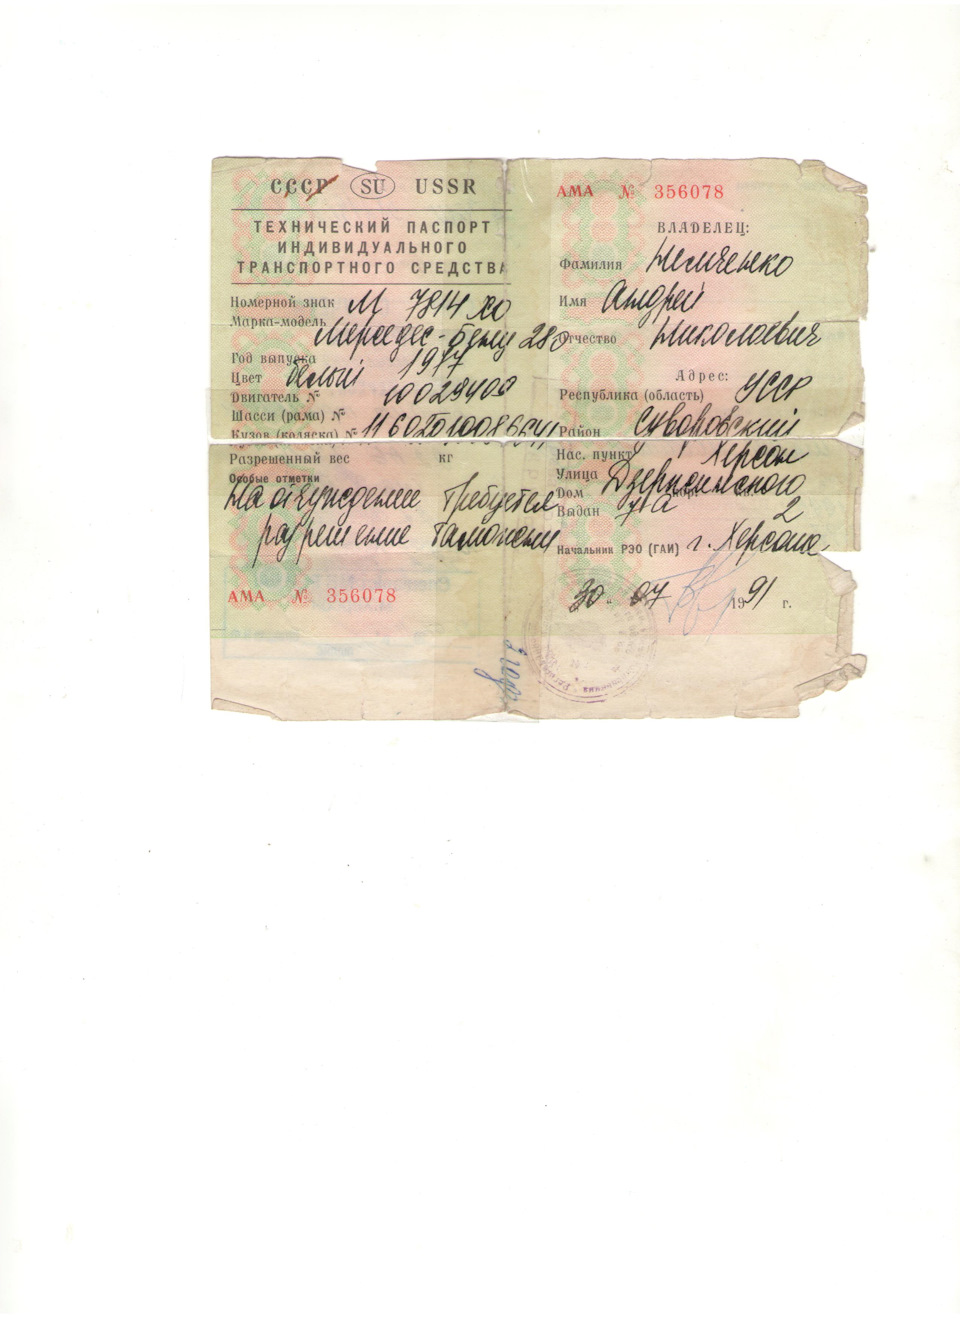 СССР SU USSR
ТЕХНИЧЕСКИЙ ПАСПОРТ
ИНДИВИДУАЛЬНОГО
ТРАНСПОРТНОГО СРЕДСТВА
Номерной знак М 7814 ХО
Марка-модель Мерседес-Бенц 280
Год выпуска 1977
Цвет белый
Двигатель №
Шасси (рама) №
Кузов (коляска) №
Разрешенный вес кг
Особые отметки
На отчуждение требуется
разрешение таможни
АМА № 356078
АМА № 356078
ВЛАДЕЛЕЦ:
Фамилия
Имя Андрей
Отчество Николаевич
Адрес:
Республика (область) УССР
Район Суворовский
Нас. пункт Херсон
Улица Дзержинского
Дом
Выдан
Начальник РЭО (ГАИ) г. Херсона
30 07 1991 г.